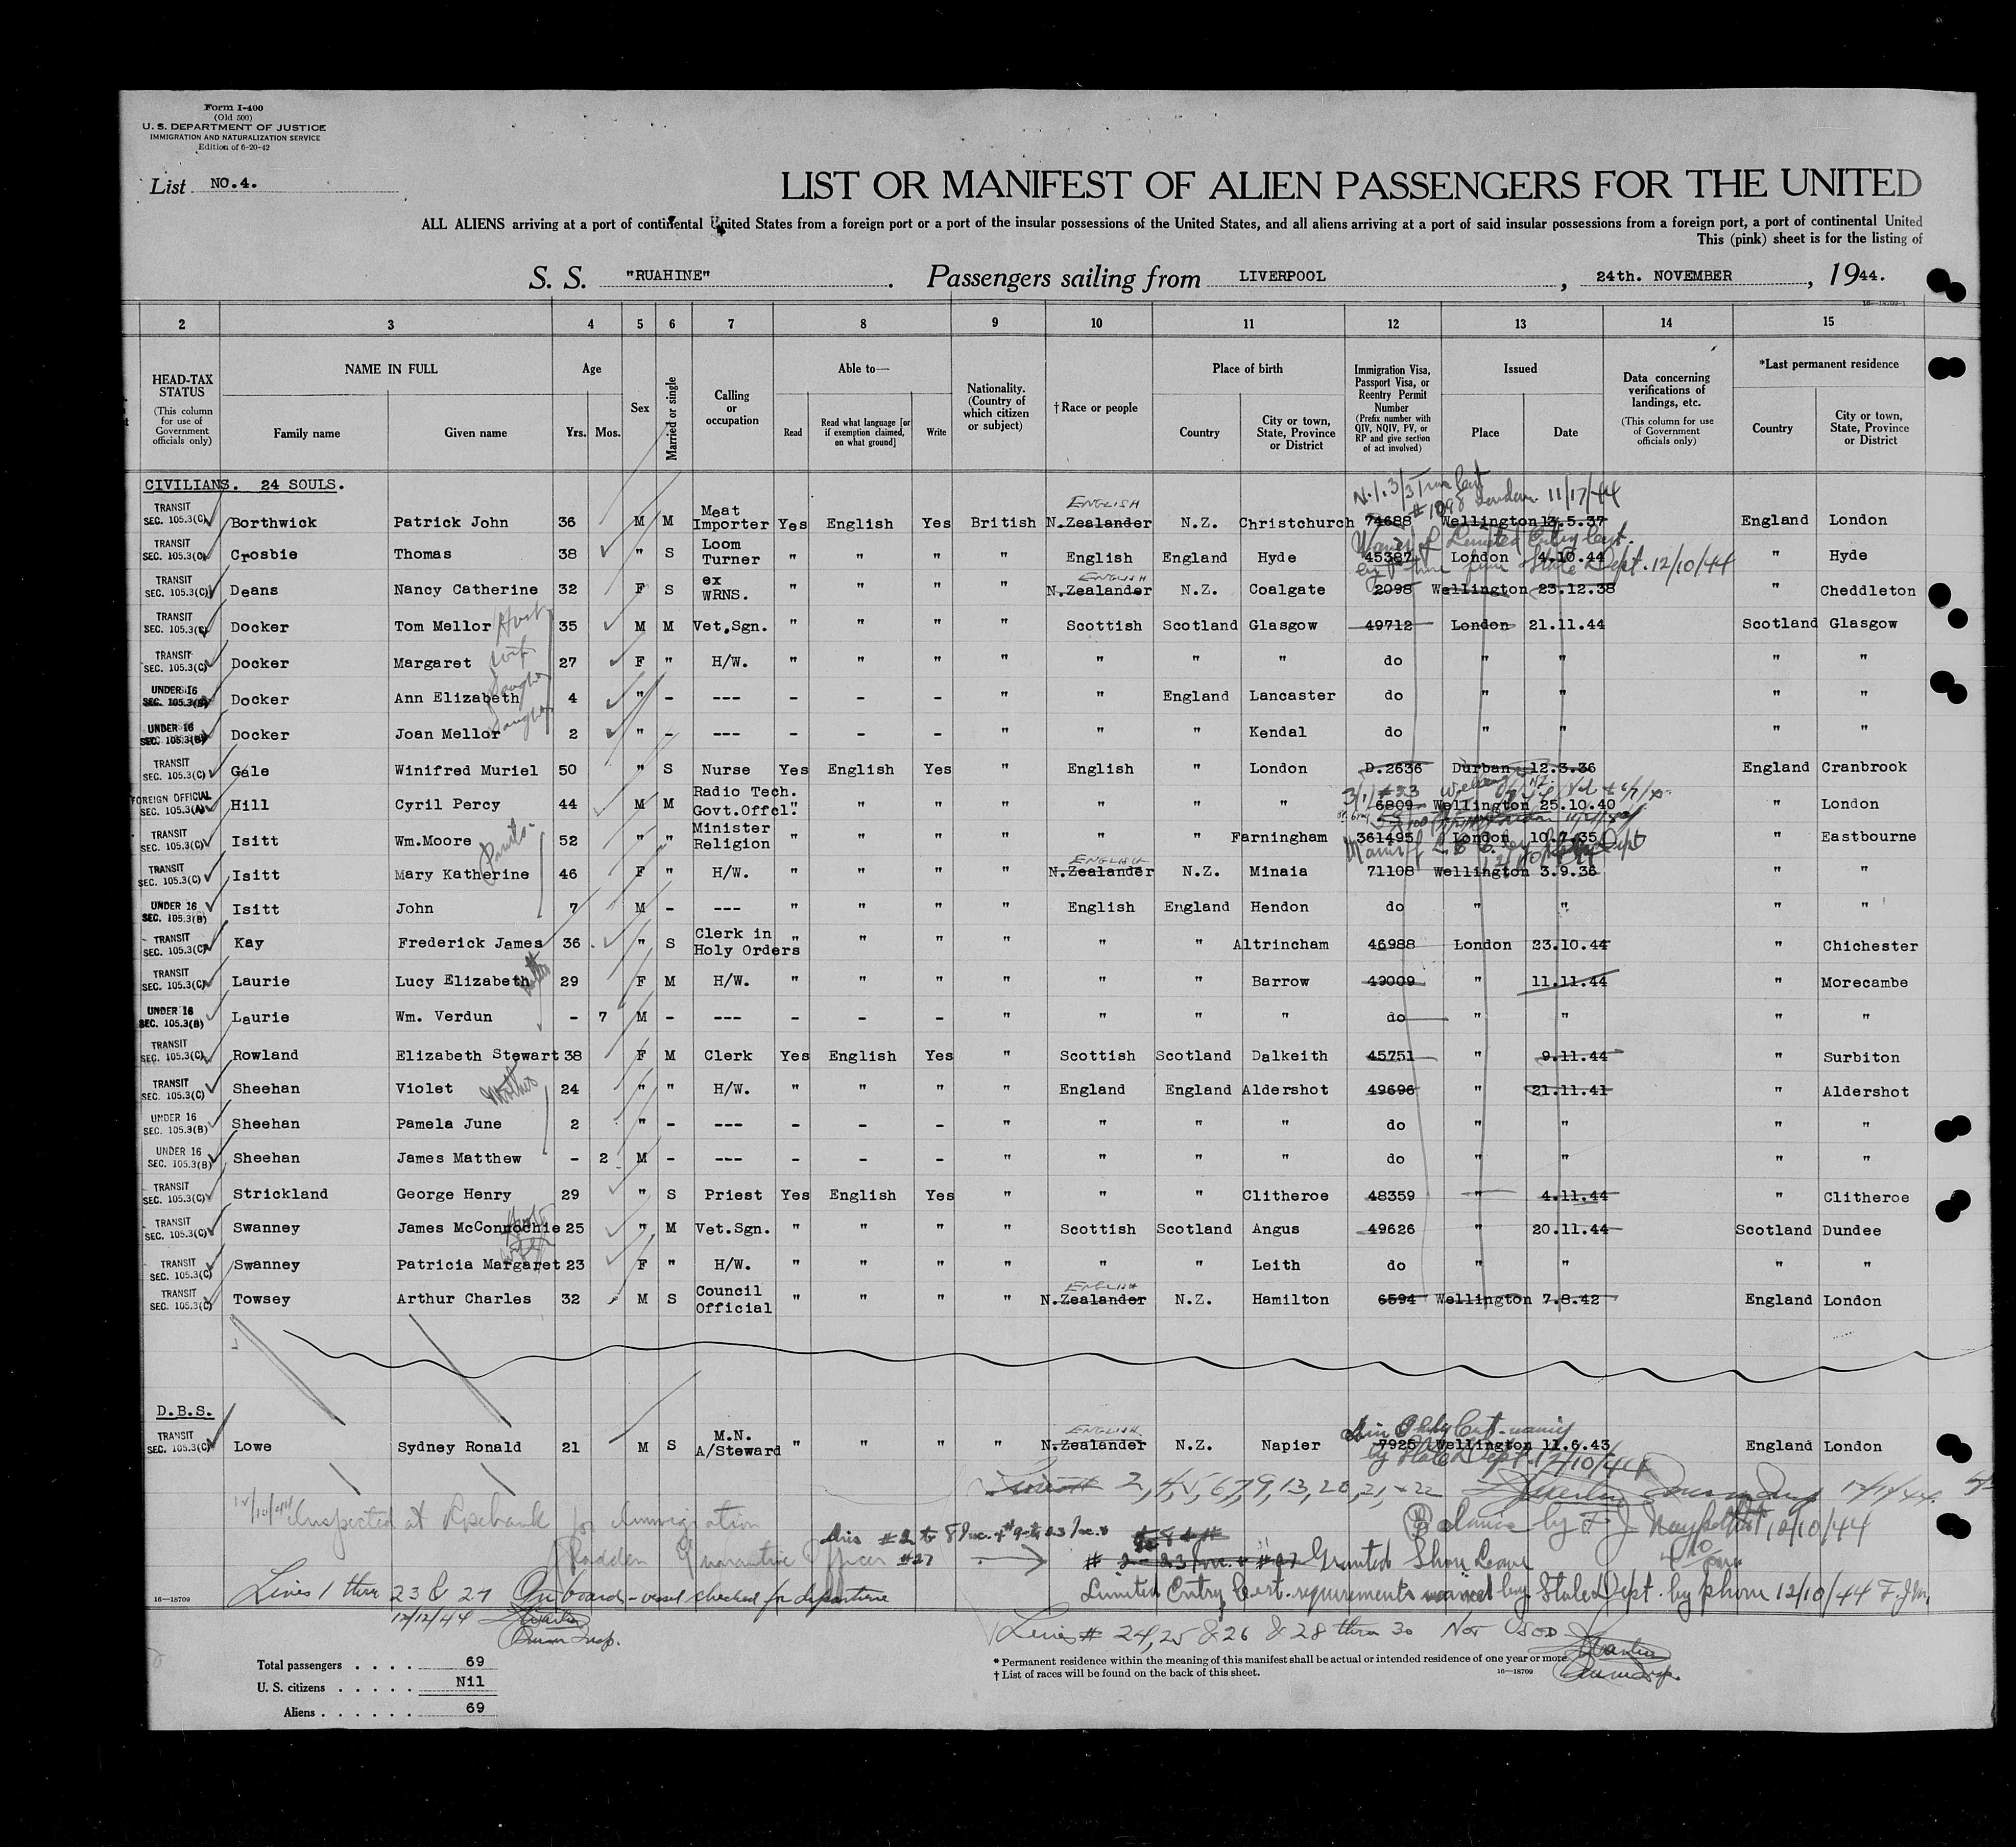 Form I-400
(Old 500)
U. S. DEPARTMENT OF JUSTICE
IMMIGRATION AND NATURALIZATION SERVICE
Edition of 6-20-42
List NO.4.
LIST OR MANIFEST OF ALIEN PASSENGERS FOR THE UNITED
ALL ALIENS arriving at a port of continental United States from a foreign port or a port of the insular possessions of the United States, and all aliens arriving at a port of said insular possessions from a foreign port, a port of continental United
This (pink) sheet is for the listing of
S. S. "RUAHINE" . Passengers sailing from LIVERPOOL , 24th. NOVEMBER , 1944.
16—18709-1
2 3 4 5 6 7 8 9 10 11 12 13 14 15
HEAD-TAX STATUS (This column for use of Government officials only)
NAME IN FULL Family name Given name
Age Yrs. Mos.
Sex
Married or single
Calling or occupation
Able to— Read Read what language [or if exemption claimed, on what ground] Write
Nationality. (Country of which citizen or subject)
†Race or people
Place of birth Country City or town, State, Province or District
Immigration Visa, Passport Visa, or Reentry Permit Number (Prefix number with QIV, NQIV, PV, or RP and give section of act involved)
Issued Place Date
Data concerning verifications of landings, etc. (This column for use of Government officials only)
*Last permanent residence Country City or town, State, Province or District
CIVILIANS. 24 SOULS.
#1098 London 11/17/44
TRANSIT SEC. 105.3(C) Borthwick Patrick John 36 M M Meat Importer Yes English Yes British ENGLISH N.Zealander N.Z. Christchurch 74688 Wellington 13.5.37 England London
Waiver of Limited Entry Cert.
TRANSIT SEC. 105.3(C) Crosbie Thomas 38 " S Loom Turner " " " " English England Hyde 45387 London 4.10.44 " Hyde
State Dept. 12/10/44
TRANSIT SEC. 105.3(C) Deans Nancy Catherine 32 F S ex WRNS. " " " " ENGLISH N.Zealander N.Z. Coalgate 2098 Wellington 23.12.38 " Cheddleton
TRANSIT SEC. 105.3(C) Docker Tom Mellor 35 M M Vet.Sgn. " " " " Scottish Scotland Glasgow 49712 London 21.11.44 Scotland Glasgow
TRANSIT SEC. 105.3(C) Docker Margaret wife 27 F " H/W. " " " " " " " do " " " "
UNDER 16 SEC. 105.3(B) Docker Ann Elizabeth daughter 4 " - --- - - - " " England Lancaster do " " " "
UNDER 16 SEC. 105.3(B) Docker Joan Mellor daughter 2 " - --- - - - " " " Kendal do " " " "
TRANSIT SEC. 105.3(C) Gale Winifred Muriel 50 " S Nurse Yes English Yes " English " London D.2636 Durban 12.3.36 England Cranbrook
FOREIGN OFFICIAL SEC. 105.3(A) Hill Cyril Percy 44 M M Radio Tech. Govt.Offcl. " " " " " " " 6809 Wellington 25.10.40 " London
TRANSIT SEC. 105.3(C) Isitt Wm.Moore 52 " " Minister Religion " " " " " " Farningham 361495 London 10.7.35 " Eastbourne
TRANSIT SEC. 105.3(C) Isitt Mary Katherine 46 F " H/W. " " " " ENGLISH N.Zealander N.Z. Minaia 71108 Wellington 3.9.36 " "
UNDER 16 SEC. 105.3(B) Isitt John 7 M - --- " " " " English England Hendon do " " " "
TRANSIT SEC. 105.3(C) Kay Frederick James 36 " S Clerk in Holy Orders " " " " " " Altrincham 46988 London 23.10.44 " Chichester
TRANSIT SEC. 105.3(C) Laurie Lucy Elizabeth 29 F M H/W. " " " " " " Barrow 49009 " 11.11.44 " Morecambe
UNDER 16 SEC. 105.3(B) Laurie Wm. Verdun - 7 M - --- - - - " " " " do " " " "
TRANSIT SEC. 105.3(C) Rowland Elizabeth Stewart 38 F M Clerk Yes English Yes " Scottish Scotland Dalkeith 45751 " 9.11.44 " Surbiton
TRANSIT SEC. 105.3(C) Sheehan Violet Mother 24 " " H/W. " " " " England England Aldershot 49696 " 21.11.41 " Aldershot
UNDER 16 SEC. 105.3(B) Sheehan Pamela June 2 " - --- - - - " " " " do " " " "
UNDER 16 SEC. 105.3(B) Sheehan James Matthew - 2 M - --- - - - " " " " do " " " "
TRANSIT SEC. 105.3(C) Strickland George Henry 29 " S Priest Yes English Yes " " " Clitheroe 48359 " 4.11.44 " Clitheroe
TRANSIT SEC. 105.3(C) Swanney James McConnochie 25 " M Vet.Sgn. " " " " Scottish Scotland Angus 49626 " 20.11.44 Scotland Dundee
TRANSIT SEC. 105.3(C) Swanney Patricia Margaret wife 23 F " H/W. " " " " " " Leith do " " " "
TRANSIT SEC. 105.3(C) Towsey Arthur Charles 32 M S Council Official " " " " ENGLISH N.Zealander N.Z. Hamilton 6594 Wellington 7.8.42 England London
D.B.S.
TRANSIT SEC. 105.3(C) Lowe Sydney Ronald 21 M S M.N. A/Steward " " " " ENGLISH N.Zealander N.Z. Napier 7925 Wellington 11.6.43 England London
by State Dept. 12/10/44
Lines# 2,4,5,6,7,9,13,20,21,+22
12/10/44 Inspected at Rosebank for Immigration
Balance by F J 12/10/44
Quarantine Officer #27
Granted Shore Leave
Lines 1 thru 23 & 27 On board - vessel checked for departure
Limited Entry Cert. requirements waived by State Dept. by phone 12/10/44 F.J.M.
16—18709
12/12/44
Lines# 24,25 & 26 & 28 thru 30 NOT USED
* Permanent residence within the meaning of this manifest shall be actual or intended residence of one year or more.
† List of races will be found on the back of this sheet.
16—18709
Total passengers . . . . 69
U. S. citizens . . . . . Nil
Aliens . . . . . . 69